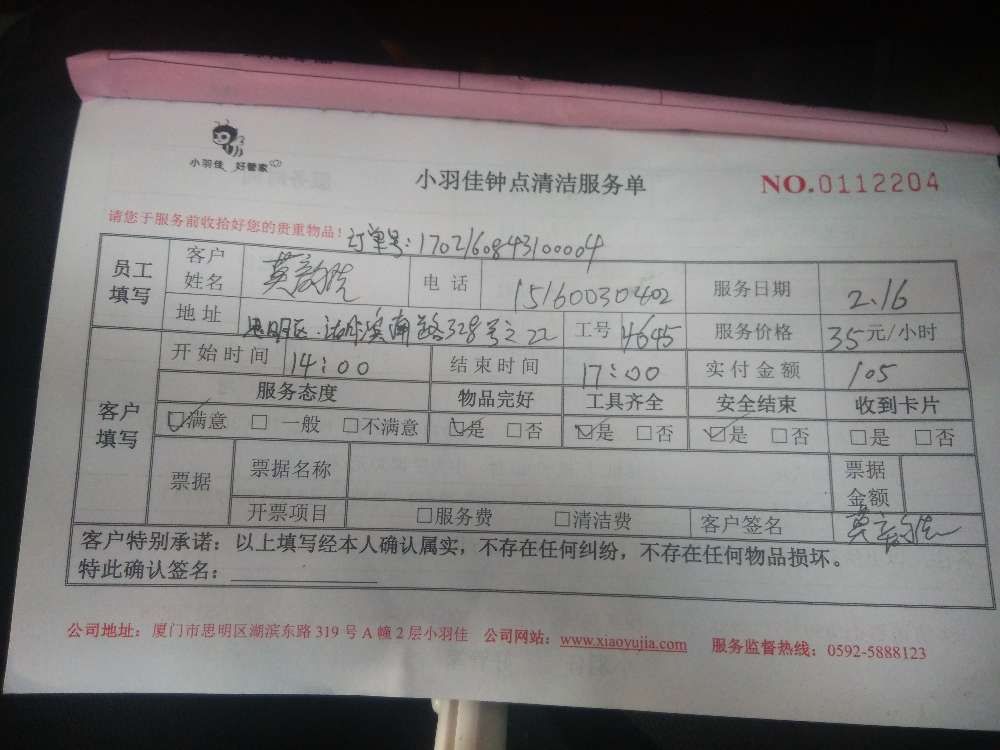 小羽佳 好管家
小羽佳钟点清洁服务单
NO.0112204
请您于服务前收拾好您的贵重物品!
订单号:1702160843100004
员工填写 客户姓名 电话 15160030402 服务日期 2.16
地址 思明区 湖滨南路328号之22 工号 4645 服务价格 35元/小时
开始时间 14:00 结束时间 17:00 实付金额 105
客户填写 服务态度 物品完好 工具齐全 安全结束 收到卡片
☑满意 □一般 □不满意 ☑是 □否 ☑是 □否 ☑是 □否 □是 □否
票据 票据名称 票据金额
开票项目 □服务费 □清洁费 客户签名
客户特别承诺:以上填写经本人确认属实,不存在任何纠纷,不存在任何物品损坏。
特此确认签名:
公司地址:厦门市思明区湖滨东路319号A幢2层小羽佳 公司网站:www.xiaoyujia.com 服务监督热线:0592-5888123